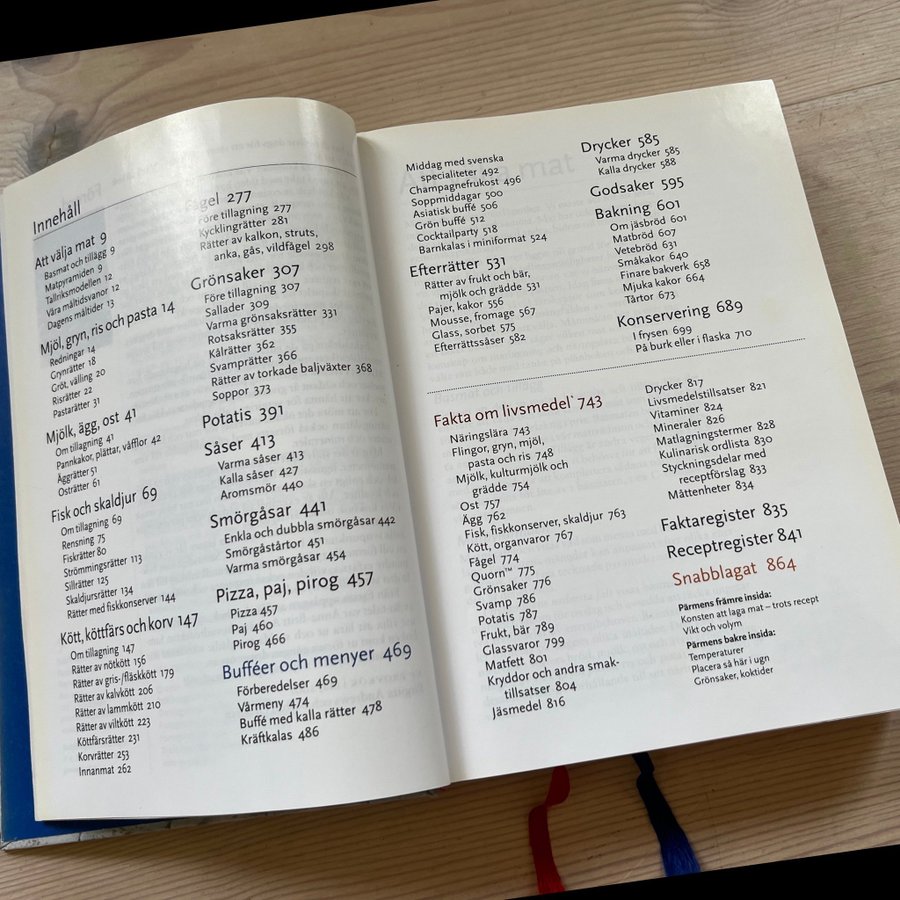 Innehåll
Att välja mat 9
Basmat och tillägg 9
Matpyramiden 9
Tallriksmodellen 12
Våra måltidsvanor 12
Dagens måltider 13
Mjöl, gryn, ris och pasta 14
Redningar 14
Grynrätter 18
Gröt, välling 20
Risrätter 22
Pastarätter 31
Mjölk, ägg, ost 41
Om tillagning 41
Pannkakor, plättar, våfflor 42
Äggrätter 51
Osträtter 61
Fisk och skaldjur 69
Om tillagning 69
Rensning 75
Fiskrätter 80
Strömmingsrätter 113
Sillrätter 125
Skaldjursrätter 134
Rätter med fiskkonserver 144
Kött, köttfärs och korv 147
Om tillagning 147
Rätter av nötkött 156
Rätter av gris-/fläskkött 179
Rätter av kalvkött 206
Rätter av lammkött 210
Rätter av viltkött 223
Köttfärsrätter 231
Korvrätter 253
Innanmat 262
Fågel 277
Före tillagning 277
Kycklingrätter 281
Rätter av kalkon, struts,
anka, gås, vildfågel 298
Grönsaker 307
Före tillagning 307
Sallader 309
Varma grönsaksrätter 331
Rotsaksrätter 355
Kålrätter 362
Svamprätter 366
Rätter av torkade baljväxter 368
Soppor 373
Potatis 391
Såser 413
Varma såser 413
Kalla såser 427
Aromsmör 440
Smörgåsar 441
Enkla och dubbla smörgåsar 442
Smörgåstårtor 451
Varma smörgåsar 454
Pizza, paj, pirog 457
Pizza 457
Paj 460
Pirog 466
Bufféer och menyer 469
Förberedelser 469
Vårmeny 474
Buffé med kalla rätter 478
Kräftkalas 486
Middag med svenska
specialiteter 492
Champagnefrukost 496
Soppmiddagar 500
Asiatisk buffé 506
Grön buffé 512
Cocktailparty 518
Barnkalas i miniformat 524
Efterrätter 531
Rätter av frukt och bär,
mjölk och grädde 531
Pajer, kakor 556
Mousse, fromage 567
Glass, sorbet 575
Efterrättssåser 582
Drycker 585
Varma drycker 585
Kalla drycker 588
Godsaker 595
Bakning 601
Om jäsbröd 601
Matbröd 607
Vetebröd 631
Småkakor 640
Finare bakverk 658
Mjuka kakor 664
Tårtor 673
Konservering 689
I frysen 699
På burk eller i flaska 710
Fakta om livsmedel 743
Näringslära 743
Flingor, gryn, mjöl,
pasta och ris 748
Mjölk, kulturmjölk och
grädde 754
Ost 757
Ägg 762
Fisk, fiskkonserver, skaldjur 763
Kött, organvaror 767
Fågel 774
Quorn™ 775
Grönsaker 776
Svamp 786
Potatis 787
Frukt, bär 789
Glassvaror 799
Matfett 801
Kryddor och andra smak-
tillsatser 804
Jäsmedel 816
Drycker 817
Livsmedelstillsatser 821
Vitaminer 824
Mineraler 826
Matlagningstermer 828
Kulinarisk ordlista 830
Styckningsdelar med
receptförslag 833
Måttenheter 834
Faktaregister 835
Receptregister 841
Snabblagat 864
Pärmens främre insida:
Konsten att laga mat – trots recept
Vikt och volym
Pärmens bakre insida:
Temperaturer
Placera så här i ugn
Grönsaker, koktider